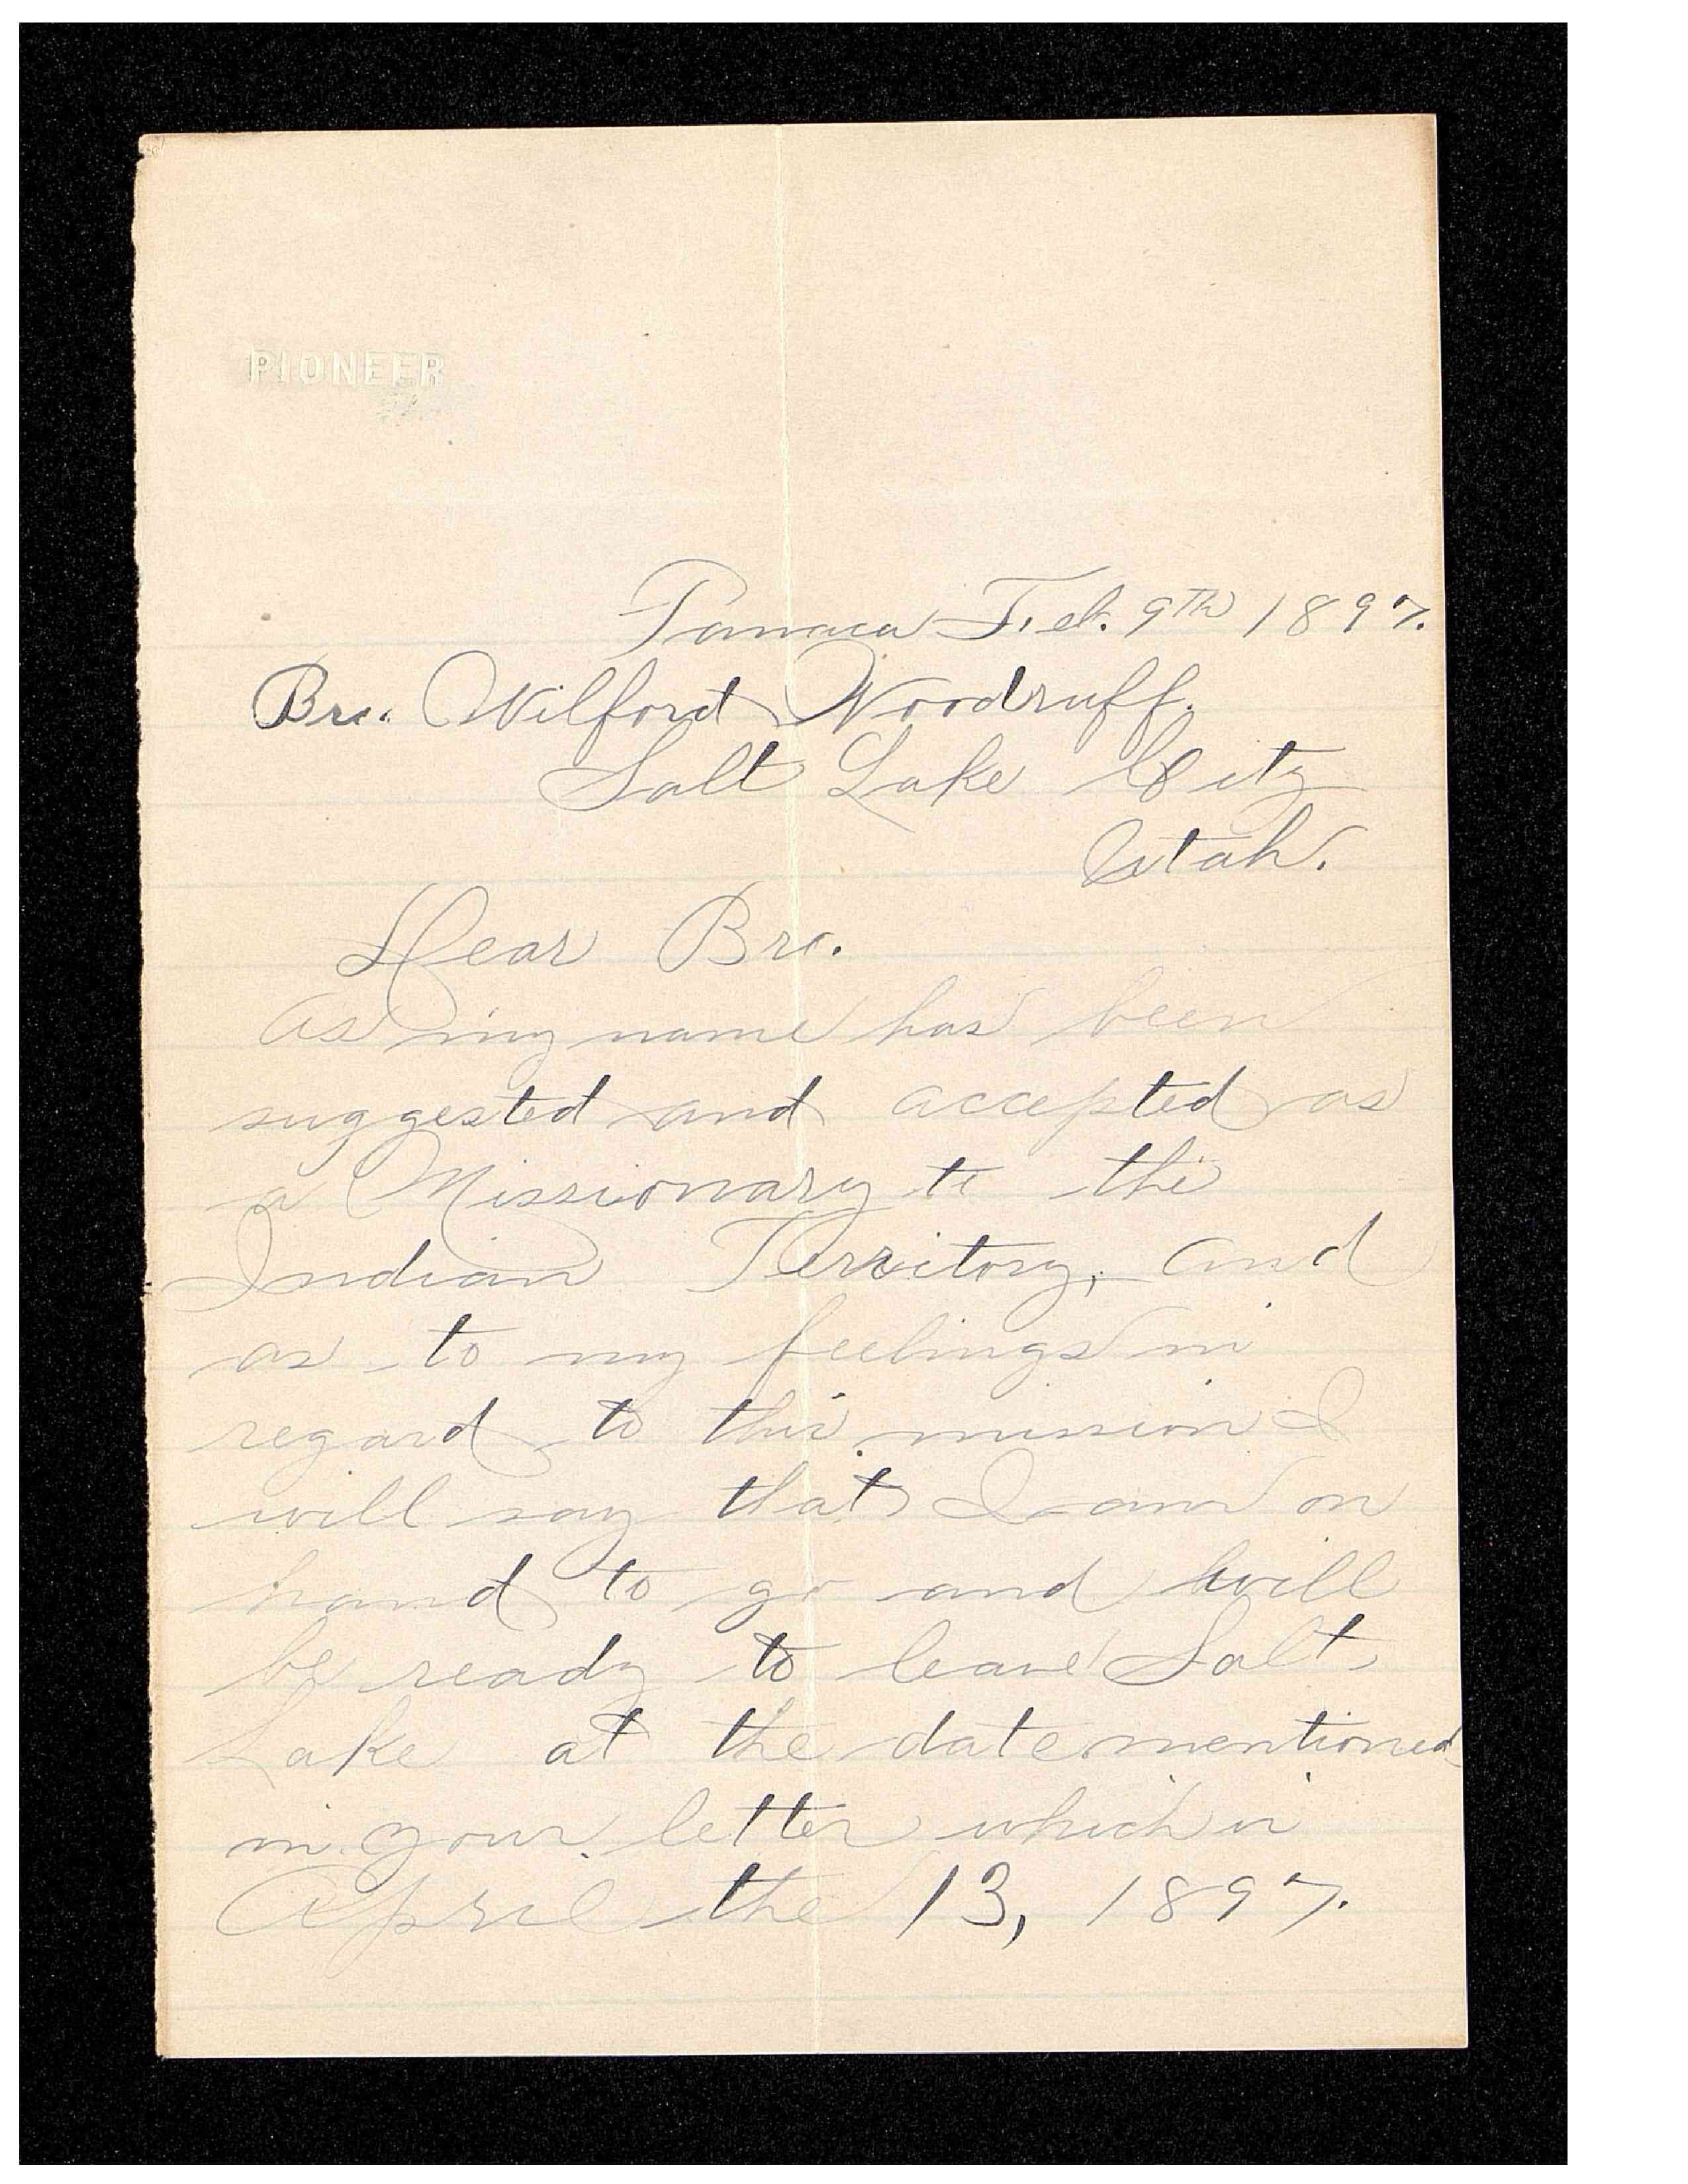 PIONEER
Panaca Feb. 9th 1897.
Bro. Wilford Woodruff.
Salt Lake City
Utah.
Dear Bro.
As my name has been
suggested and accepted as
a Missionary to the
Indian Territory, and
as to my feelings in
regard to this mission I
will say that I am on
hand to go and will
be ready to leave Salt
Lake at the date mentioned
in your letter which is
April the 13, 1897.